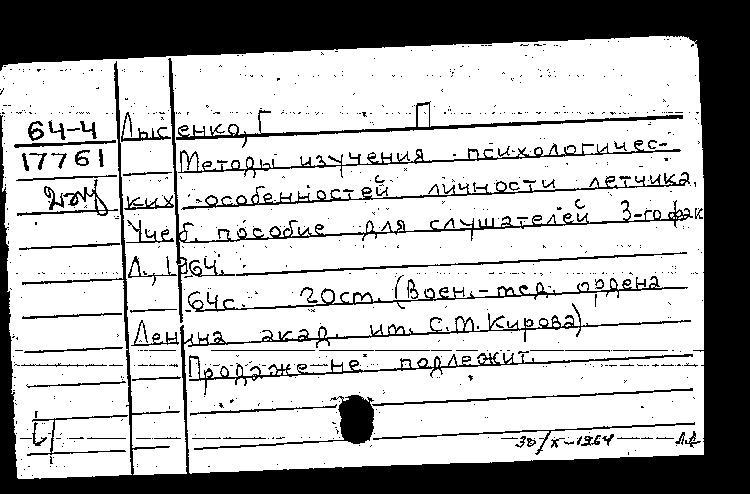 64-4 Лысенко, Г П
17761 Методы изучения психологичес-
ких особенностей личности летчика.
Учеб. пособие для слушателей 3-го фак
Л., 1964.
64с. 20ст. (Воен.-мед. ордена
Ленина акад. им. С.М. Кирова).
Продаже не подлежит.
30/X-1964